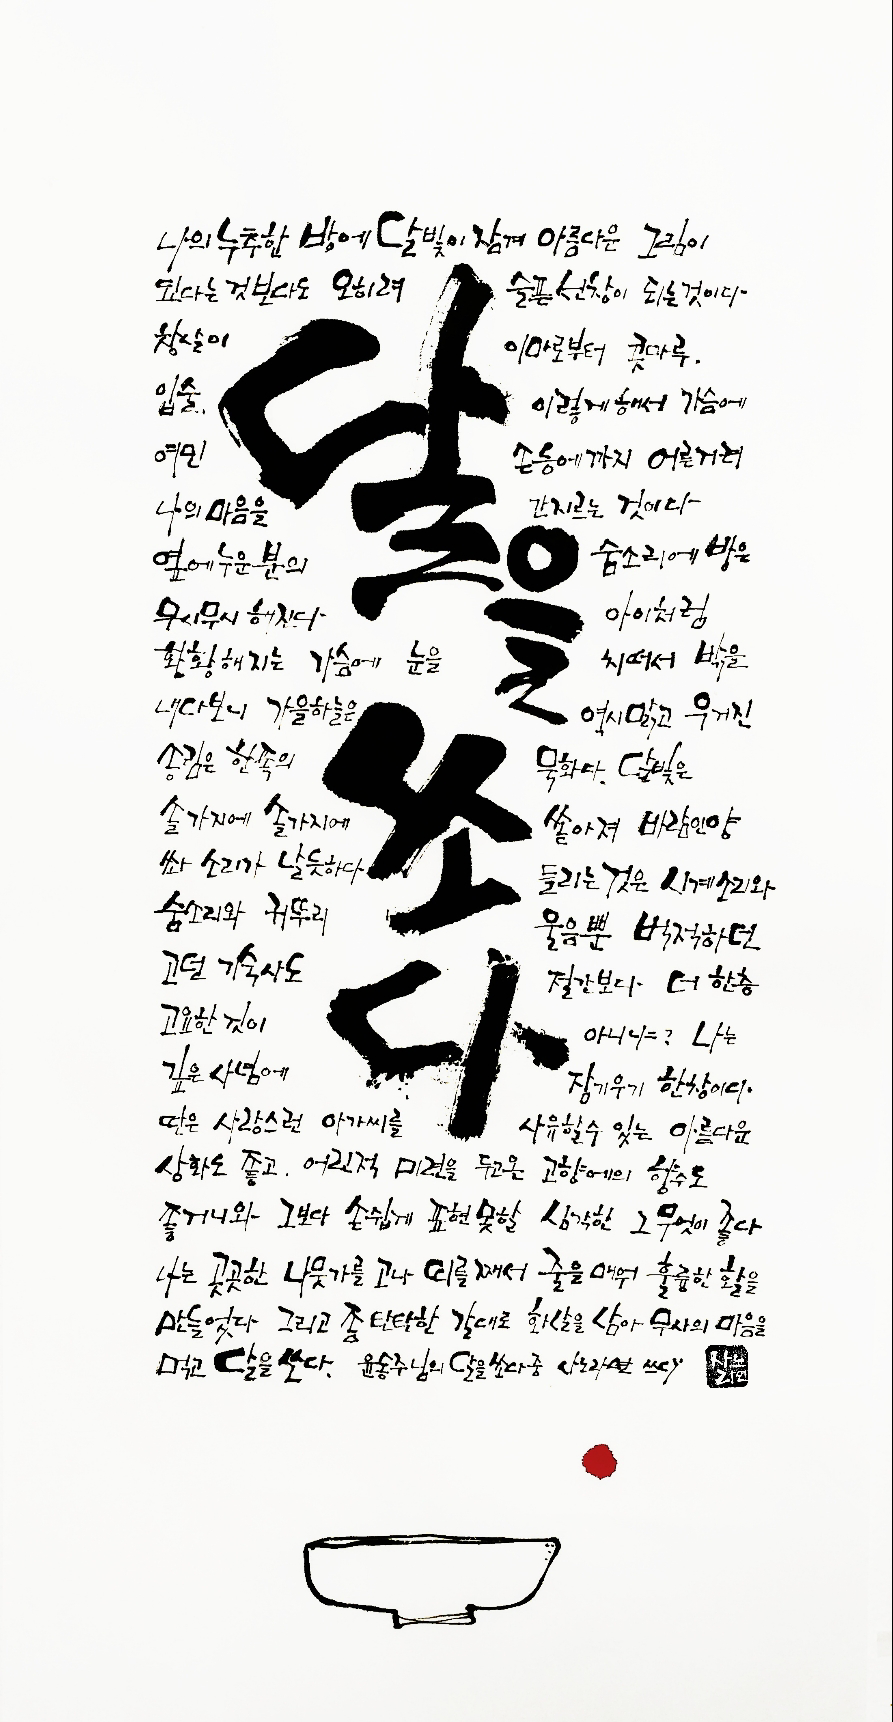 달을
쏘다
나의 누추한 방에 달빛이 잠겨 아름다운 그림이
된다는 것보다도 오히려 슬픈 선창이 되는 것이다.
창살이 이마로부터 콧마루,
입술, 이렇게 해서 가슴에
여민 손등에까지 어른거려
나의 마음을 간지르는 것이다.
옆에 누운 분의 숨소리에 방은
무시무시 해진다. 아이처럼
황황해지는 가슴에 눈을 치떠서 밖을
내다보니 가을하늘은 역시 맑고 우거진
송림은 한폭의 묵화다. 달빛은
솔가지에 솔가지에 쏟아져 바람인양
쏴 소리가 날듯하다. 들리는 것은 시계소리와
숨소리와 귀뚜리 울음뿐 벅적하던
고던 기숙사도 절간보다 더 한층
고요한 것이 아니냐? 나는
깊은 사념에 잠기우기 한창이다.
딴은 사랑스런 아가씨를 사유할수 있는 아름다운
상화도 좋고, 어린적 미련을 두고온 고향에의 향수도
좋거니와 그보다 손쉽게 표현 못할 심각한 그 무엇이 좋다
나는 꼿꼿한 나뭇가를 고나 띠를 째서 줄을 매워 훌륭한 활을
만들었다 그리고 좀 탄탄한 갈대로 화살을 삼아 무사의 마음을
먹고 달을 쏘다. 윤동주님의 달을 쏘다 중 사노라면 쓰다